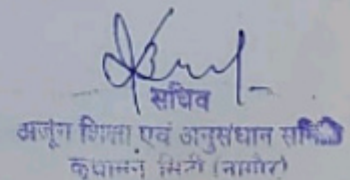 सचिव
अर्जुन शिक्षा एवं अनुसंधान समिति
कुचामन सिटी (नागौर)